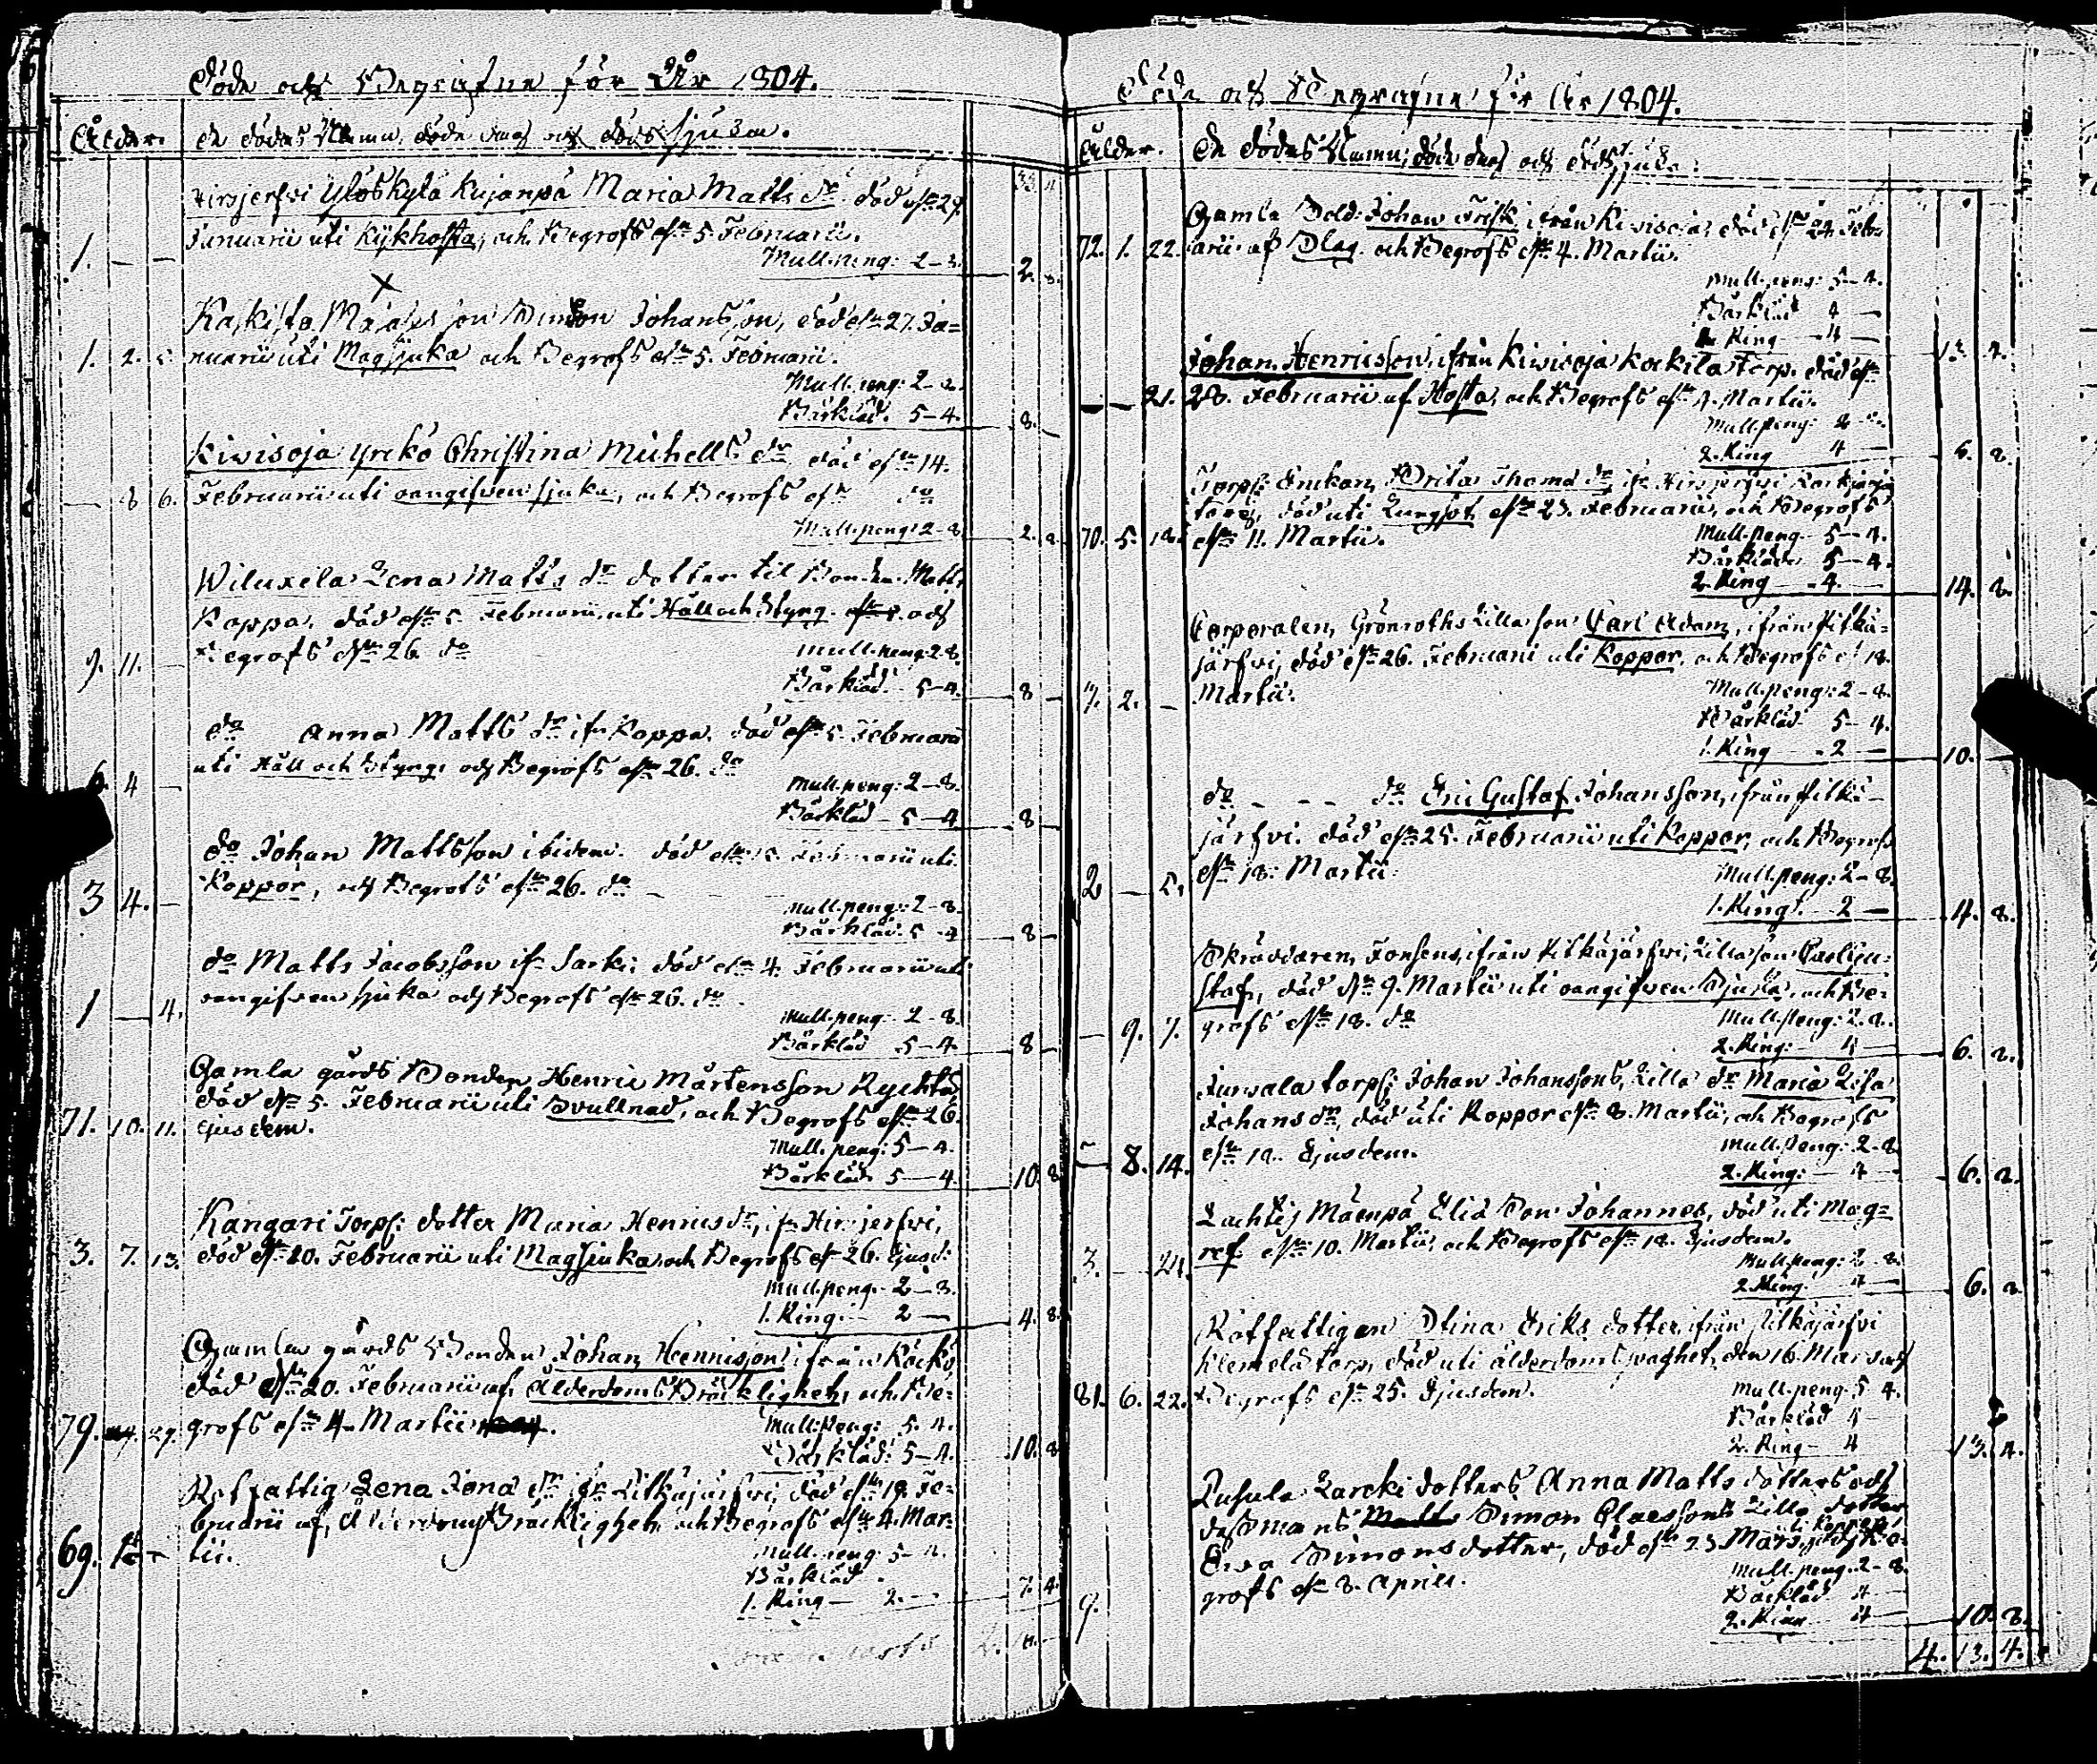 Döde och Begrafne för År 1804.
Ålder. De dödas Namn, döde dag och dödssjukdom.
Hirsjerfvi Ylöskylä Kujanpä Maria Matts dr. död den 29.
1. — — Januarii uti Kikhosta, och Begrofs den 5 Februarii.
Mull.peng: 2-8. 2. 8.
Kaskisto Måås son Simon Johansson, död den 27. Ja=
1. 2. 5. nuarii uti Magsjuka och Begrofs den 5. Februarii.
Mull.peng: 2-8.
Bårkläd. 5-4. 8. —
Kivisoja Yrckö Christina Michells dr död den 14.
— 8 6. Februarii uti oangifven sjuka, och Begrofs den do
Mull.peng: 2-8. 2. 8.
Wiluxela Lena Matts dr dotter til Bonden Matts
Koppa, död den 5. Februarii, uti Håll och Styng och
9. 11. — Begrofs den 26. do
Mull.peng. 2-8.
Bårkläd. 5-4. 8 —
do Anna Matts dr ifr Koppa. död den 5. Februarii
6. 4 — uti Håll och Styng, och Begrofs den 26. do
Mull.peng: 2-8.
Bårkläd 5-4 8 —
do Johan Mattsson ibidem. död den Februarii uti
3 4. — Koppor, och Begrofs den 26. do
Mull.peng: 2-8.
Bårkläd. 5-4 8 —
do Matts Jacobsson ifr Sarki: död den 4. Februarii uti
1 — 4. oangifven sjuka och Begrofs den 26. do
Mull.peng: 2-8.
Bårkläd 5-4. 8 —
Gamla gårds Bonden Henric Mårtensson Rychtä
död den 5. Februarii uti Svullnad, och Begrofs den 26.
71. 10. 11. ejusdem.
Mull.peng: 5-4.
Bårkläd. 5-4. 10. 8.
Kangari Torps: dotter Maria Henrics dr, ifr Hirsjerfvi,
3. 7. 13. död den 20. Februarii uti Magsjuka och Begrofs den 26. Ejusd:
Mull.peng: 2-8.
1. Ring: 2 — 4. 8.
Gamla gårds Bonden Johan Hennisson ifrån Käckö
död den 20. Februarii af Ålderdoms Bräcklighet, och Be=
79. 29. grofs den 4. Martii
Mull.Peng: 5. 4.
Bårkläd: 5-4. 10. 8
Rotfattig Lena Jona dr ifr Pitkäjärfvi, död den 19. Fe=
bruarii af Ålderdoms Bräcklighet och Begrofs den 4. Mar=
69. tii.
Mull.peng: 5-4.
Bårkläd
1. Ring — 2. — 7. 4.
Döde och Begrafne för År 1804.
Ålder. De dödas Namn, döde dag och dödssjuka.
Gamla Sold: Johan Frisk, ifrån Kivisoja, död den 22. Febru
72. 1. 22. arii af Slag och Begrofs den 4. Martii.
Mull.peng: 5-4.
Bårkläd 4 —
2 Ring 4 — 13. 4.
Johan Henricsson, ifrån Kivisoja Kockila Torp. död den
— — 21. 28. Februarii af Hosta, och Begrofs den 4. Martii.
Mull.peng: 2-8.
2. Ring 4 — 6. 8.
Torps: Enkan, Brita Thoma dr, ifr Hirsjerfvi
död uti Lungsot den 23. Februarii, och Begrofs
70. 5. 18. den 11. Martii.
Mull.peng. 5-4.
Bårkläde 5-4.
2. Ring 4. — 14. 8.
Corporalen, Grönroths Lilla son Carl Adam, ifrån Pitkä=
järfvi, död den 26. Februarii uti Koppor, och Begrofs d 18.
7. 2. — Martii.
Mull.peng: 2-8.
Bårkläd 5-4.
1. Ring 2 — 10. —
do — — do Eric Gustaf Johansson, ifrån Pitkä-
järfvi. död den 25. Februarii uti Koppor, och Begrofs
2 — 5. den 18. Martii.
Mull.peng: 2-8.
1. Ring. 2 — 4. 8.
Skräddaren, Fonsens, ifrån Pitkäjärfvi, Lilla son Carl Gu=
staf, död den 9. Martii uti oangifven Sjuka, och Be=
— 9. 7. grofs den 18. do
Mull.Peng: 2-8.
2. Ring: 4 — 6. 8.
Turvala torps: Johan Johanssons, Lilla dr Maria Lisa
Johans dr, död uti Koppor den 8. Martii, och Begrofs
— 8. 14. den 18. Ejusdem.
Mull.Peng: 2-8
2. Ring: 4 — 6. 8.
Lachtis Mäenpä Eliæ Son Johannes, död uti Mag=
3. — 24. ref den 10. Martii, och Begrofs den 18. Ejusdem.
Mull.peng: 2-8.
2. Ring 4 — 6. 8
Rotfattigen Stina Eriks dotter, ifrån Pitkäjärfvi
Klemelä torp, död uti ålderdoms svaghet, den 16. Mars och
81. 6. 22. Begrofs den 25. Ejusdem.
Mull.peng. 5 4.
Bårkläd 4 —
2. Ring — 4 13. 4.
Lusula Larcki dotters Anna Matts dotters och
dess mans Simon Claessons Lilla dotter
Ewa Simons dotter, död den 23 Mars, uti Koppor och Be=
9. grofs den 8. Aprill.
Mull.peng. 2-8.
Bårkläd 4 —
2. Ring 4 — 10. 8.
4. 13. 4.